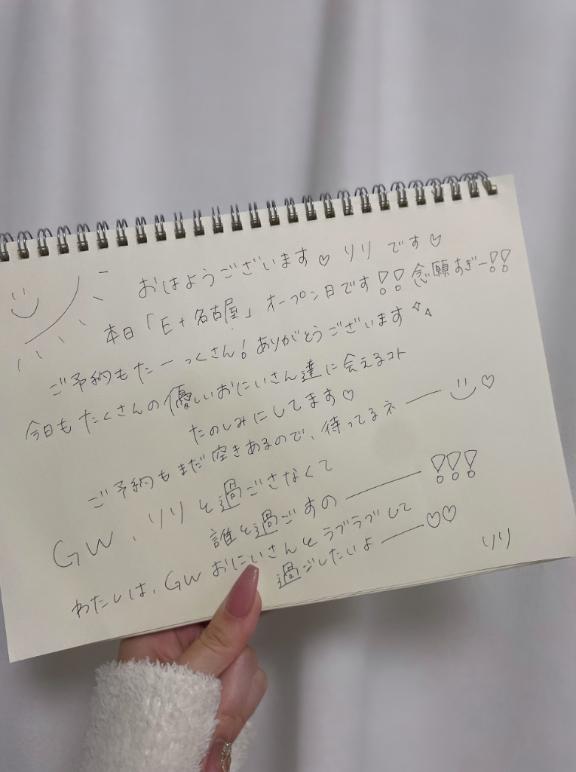 おはようございます♡ リリ です♡
本日「E+名古屋」オープン日です!! 念願すぎー!!
ご予約もたーっくさん!ありがとうございます✨
今日もたくさんの優しいおにいさん達に会えるコト
たのしみにしてます♡
ご予約もまだ空きあるので、待ってるネ——☺♡
GW、リリと過ごさなくて
誰と過ごすの———!!!
わたしは、GWおにいさんとラブラブして
過ごしたいよ——♡♡
リリ